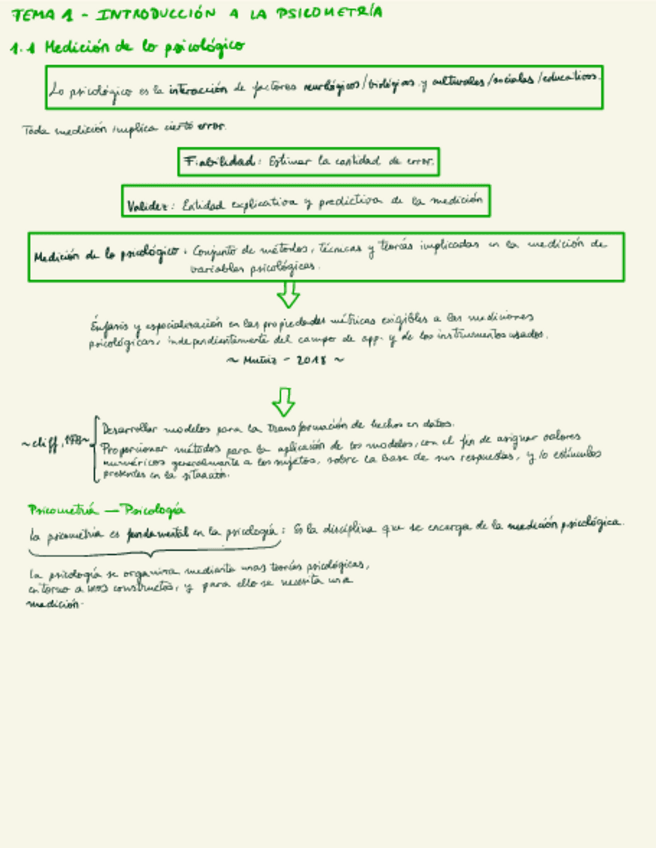 TEMA 1 - INTRODUCCIÓN A LA PSICOMETRÍA
1.1 Medición de lo psicológico
Lo psicológico es la interacción de factores neurológicos/biológicos y culturales/sociales/educativos.
Toda medición implica cierto error.
Fiabilidad: Estimar la cantidad de error.
Validez: Entidad explicativa y predictiva de la medición
Medición de lo psicológico: Conjunto de métodos, técnicas y teorías implicadas en la medición de
variables psicológicas.
Énfasis y especialización en las propiedades métricas exigibles a las mediciones
psicológicas, independientemente del campo de app. y de los instrumentos usados.
~ Muñiz - 2018 ~
Desarrollar modelos para la transformación de hechos en datos.
~cliff, 1973~
Proporcionar métodos para la aplicación de los modelos, con el fin de asignar valores
numéricos generalmente a los sujetos, sobre la base de sus respuestas, y/o estímulos
presentes en la situación.
Psicometría — Psicología
La psicometría es fundamental en la psicología: Es la disciplina que se encarga de la medición psicológica.
La psicología se organiza mediante unas teorías psicológicas,
en torno a unos constructos, y para ello se necesita una
medición.